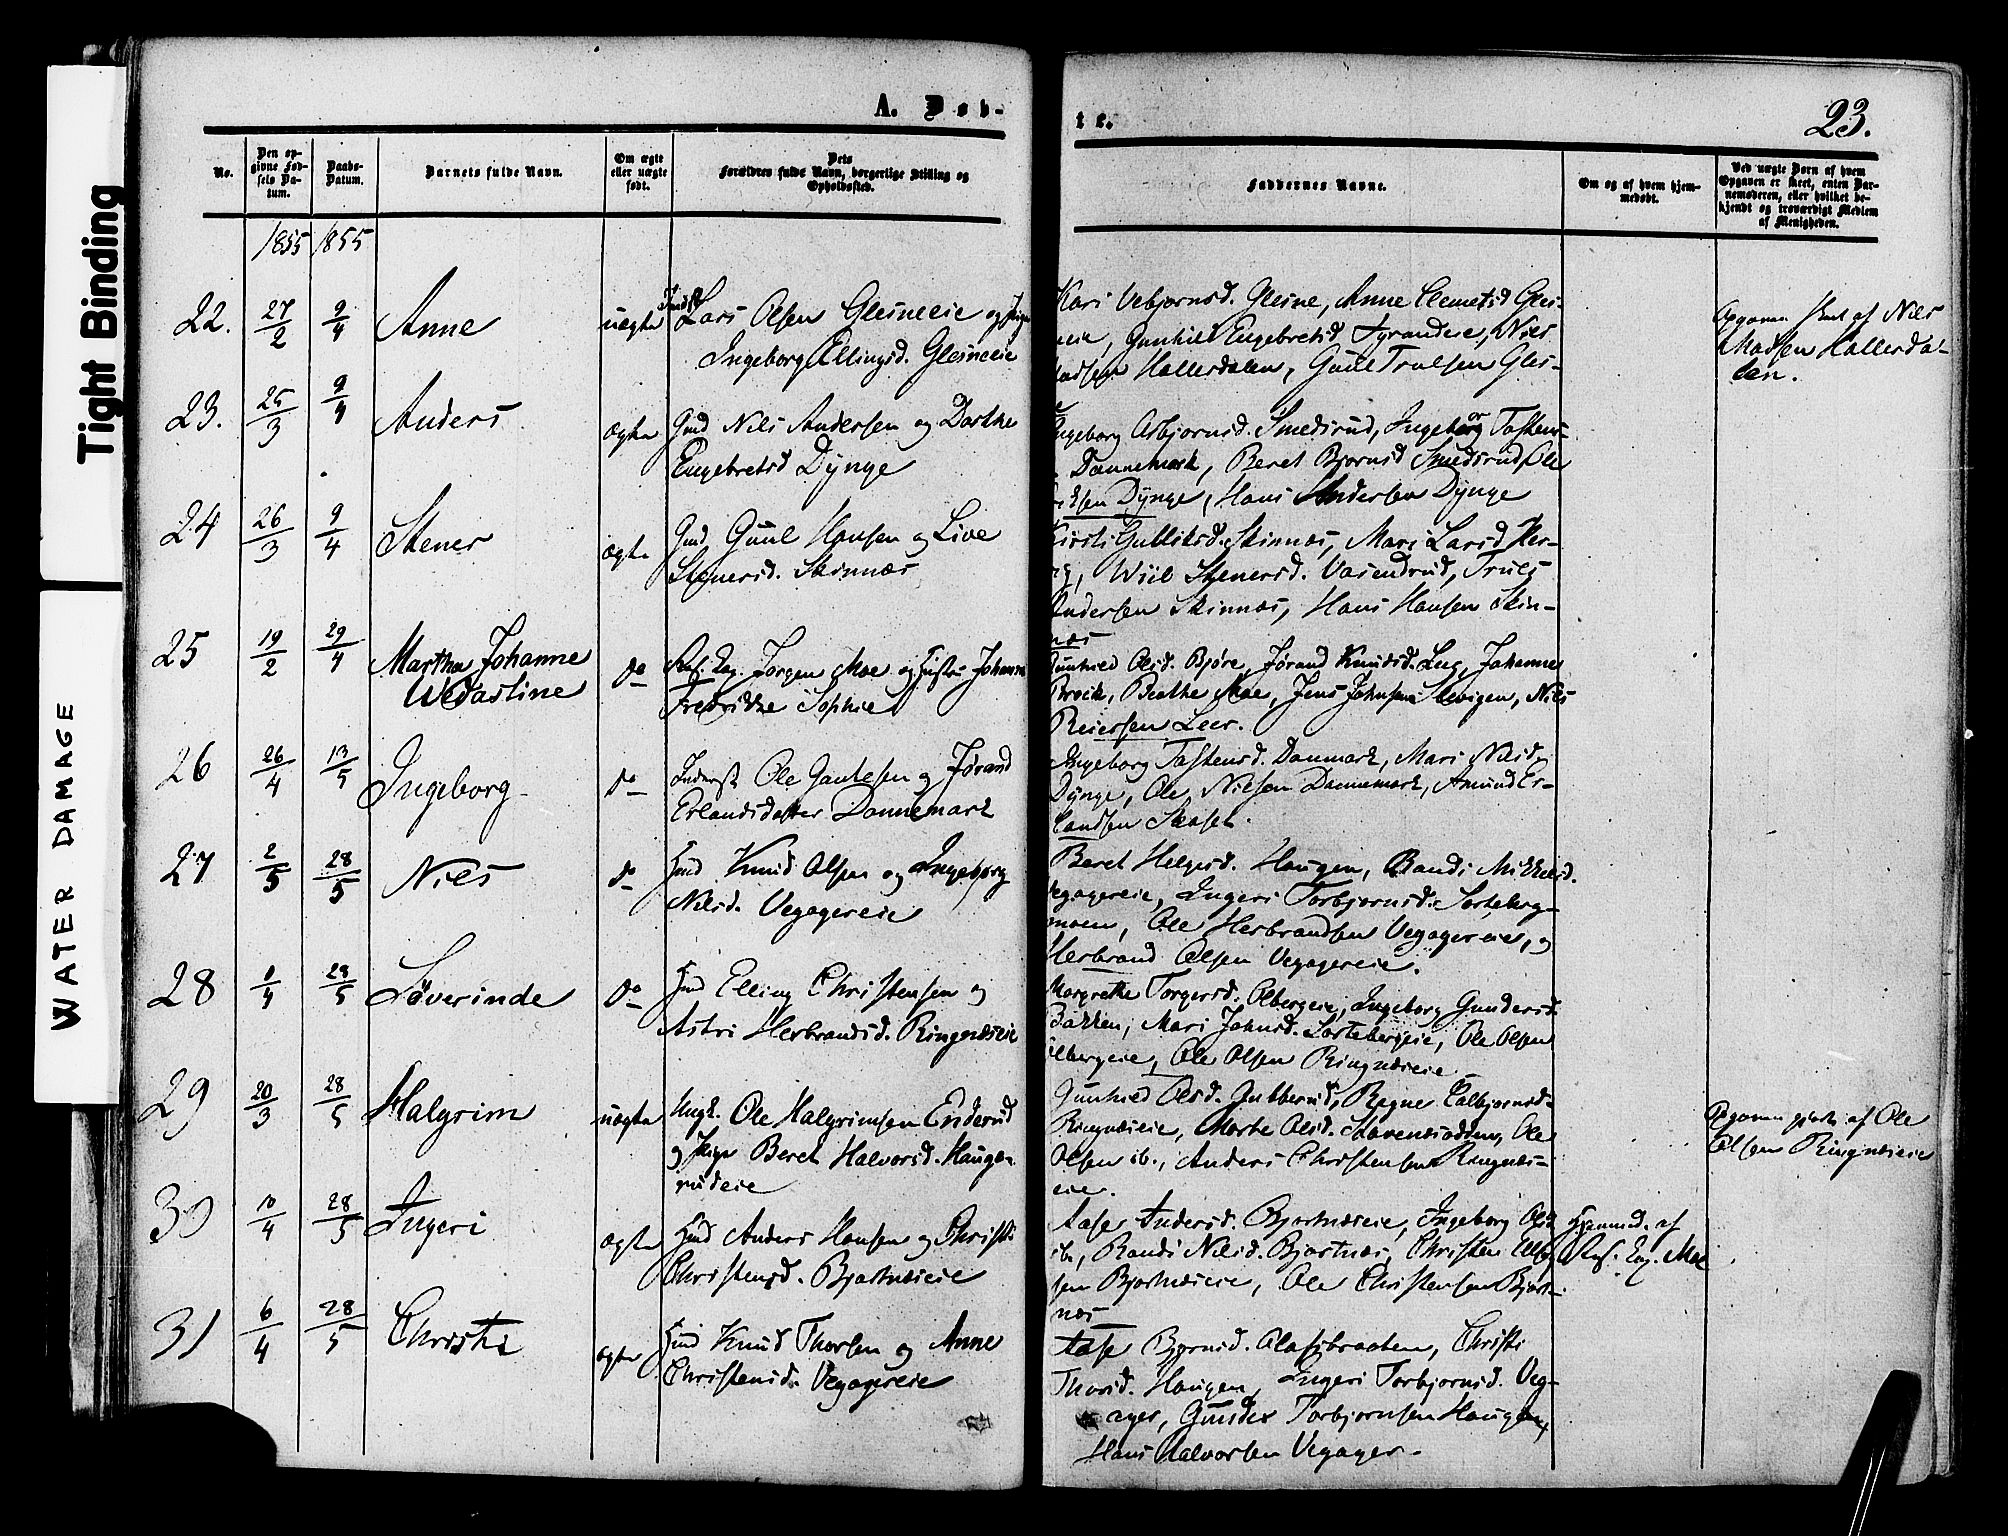 Tight Binding
WATER DAMAGE
A. Døb-
te.
23.
No.
Den op-
givne Fød-
sels Da-
tum.
Daabs-
Datum.
Barnets fulde Navn.
Om ægte
eller uægte
født.
Dets
Forældres fulde Navn, borgerlige Stilling og
Opholdssted.
Faddernes Navne.
Om og af hvem hjem-
medøbt.
Ved uægte Børn af hvem
Opgaven er skeet, enten Bar-
nemoderen, eller hvilket be-
kjendt og troværdigt Medlem
af Menigheden.
1855 1855
22. 27/2 9/4 Anne uægte Lars Olsen Glesneeie og Pige
Ingeborg Ellingsd. Glesneeie
Kari Vebjørnsd. Glesne, Anne Clemetsd Gles-
neeie, Gunhild Engebretsd Tyrandeie, Niels
Madsen Hallesdalen, Guul Trulsen Gles-
ne
Opgaven skeet af Niels
Madsen Hallesda-
len.
23. 25/3 9/4 Anders ægte Gmd Nils Andersen og Dorthe
Engebretsd Dynge
Ingeborg Asbjørnsd. Smedsrud, Ingeborg Tostens-
d. Dannemark, Beret Bjørnsd Smedsrud, Ole
Dynge, Hans Andersen Dynge
24 26/3 9/4 Stener ægte Gmd. Guul Hansen og Live
Stenersd. Skinnæs
Kirsti Gulliksd. Skinnæs, Mari Larsd Ber-
g, Wiil Stenersd. Vasendrud, Truls
Andersen Skinnæs, Hans Hansen Skin-
næs
25 19/2 29/4 Martha Johanne
Wedastine do Res. Cap. Jørgen Moe og Hustru Johanne
Fredrikke Sophie
Gunhild Olsd. Bjøre, Jørand Knudsd. Lug, Johannes
Brock, Berthe Moe, Jens Johnsen Stevigen, Niels
Reiersen Leer.
26 26/4 13/5 Ingeborg do Inderst Ole Gautesen og Jørand
Erlandsdatter Dannemark
Ingeborg Tostensd. Danmark, Mari Nilsd.
Dynge, Ole Nielsen Dannemark, Amund Er-
landsen Skaset.
27 2/5 28/5 Niels do Hmd Knud Olsen og Ingeborg
Nilsd. Vegagereie
Beret Helgesd. Haugen, Randi Mikkelsd.
Vegagereie, Ingeri Torbjørnsd. Sorteberg-
moen, Ole Herbrandsen Vegagereie, og
Herbrand Olsen Vegagereie.
28 1/4 28/5 Søverinde do Hmd Elling Christensen og
Astri Herbrandsd. Ringnæseie
Margrethe Torgersd. Olbergeie, Ingeborg Gundersd.
Bakken, Mari Johnsd. Sortebergeie, Ole Olsen
Olbergeie, Ole Olsen Ringnæseie
29 20/3 28/5 Halgrim uægte Ungk. Ole Halgrimsen Enderud
og Pige Beret Halvorsd. Haugen-
rudeie
Gunhild Olsd. Gubberud, Ragne Colbjørnsd.
Ringnæseie, Marte Olsd. Ole
Olsen ib., Anders Christensen Ringnæs-
eie.
Opgaven gjort af Ole
Olsen Ringnæseie
30 10/4 28/5 Ingeri ægte Hmd Anders Hansen og Christi
Christensd. Bjertnæseie
Aase Andersd. Bjertnæseie, Ingeborg Olsd
ib., Randi Nilsd. Bjertnæs, Christen Elling-
sen Bjertnæseie, Ole Christensen Bjert-
næs
Hjemmed. af
Res. Cap. Moe
31 6/4 28/5 Christi ægte Hmd Knud Thorsen og Anne
Christensd. Vegagereie
Aase Bjørnsd. Olasbraaten, Christi
Thorsd. Haugen, Ingeri Torbjørnsd. Veg-
ager, Gunder Torbjørnsen Haugen,
Hans Halvorsen Vegager.